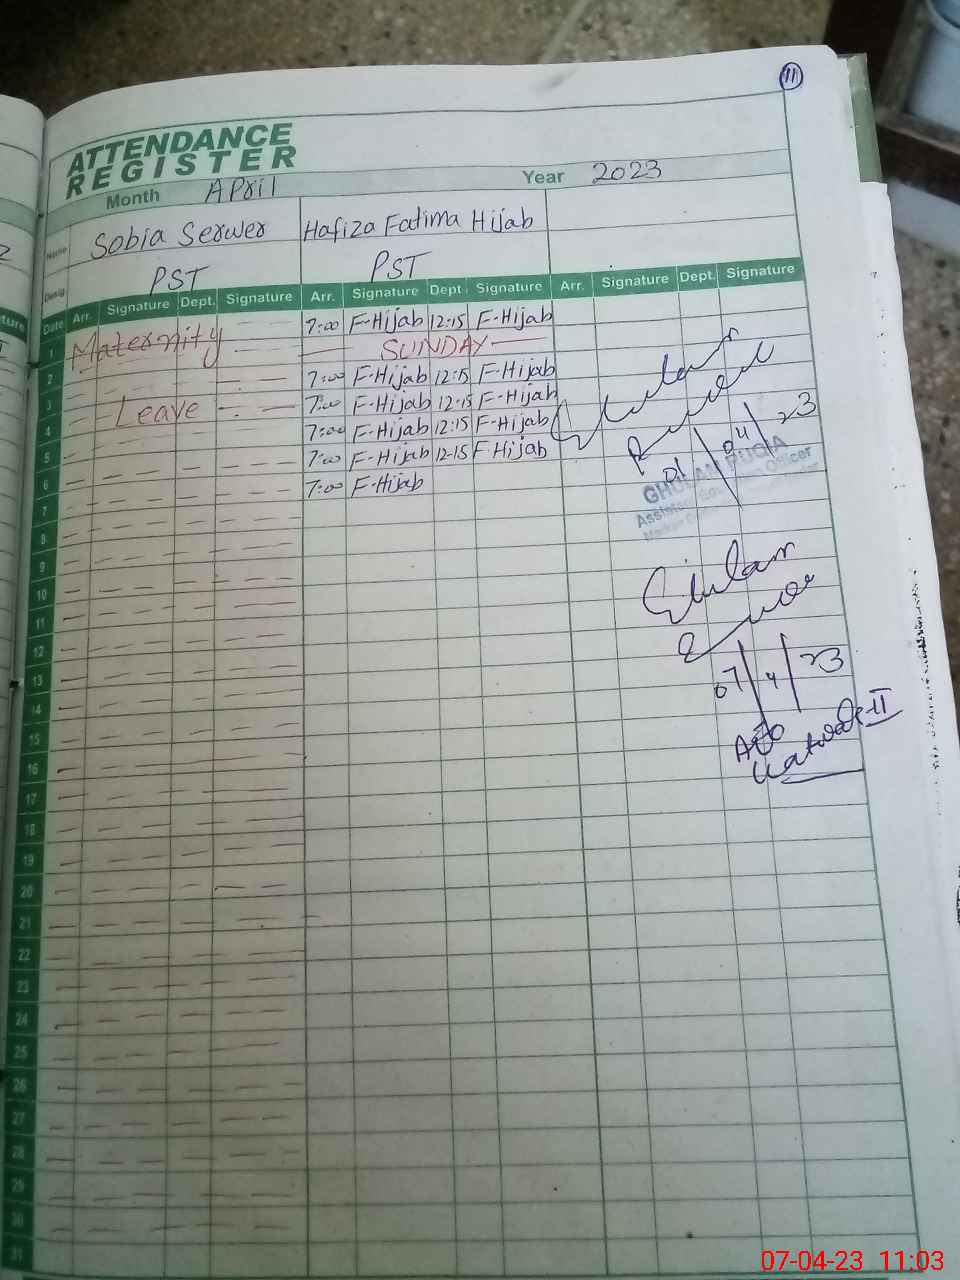 11
ATTENDANCE
REGISTER
Month April Year 2023
Name Sobia Serwer Hafiza Fatima Hijab
Desig. PST PST
Date Arr. Signature Dept. Signature Arr. Signature Dept Signature Arr. Signature Dept. Signature
1 Maternity 7:00 F-Hijab 12:15 F-Hijab
2 SUNDAY
3 7:00 F-Hijab 12:15 F-Hijab
4 Leave 7:00 F-Hijab 12:15 F-Hijab
5 7:00 F-Hijab 12:15 F-Hijab
6 7:00 F-Hijab 12:15 F-Hijab
7 7:00 F-Hijab
8
9
10
11
12
13
14
15
16
17
18
19
20
21
22
23
24
25
26
27
28
29
30
31
Ghulam
01/04/23
GHULAM RUQIA
Assistant Education Officer
Ghulam
07/4/23
AEO
07-04-23 11:03